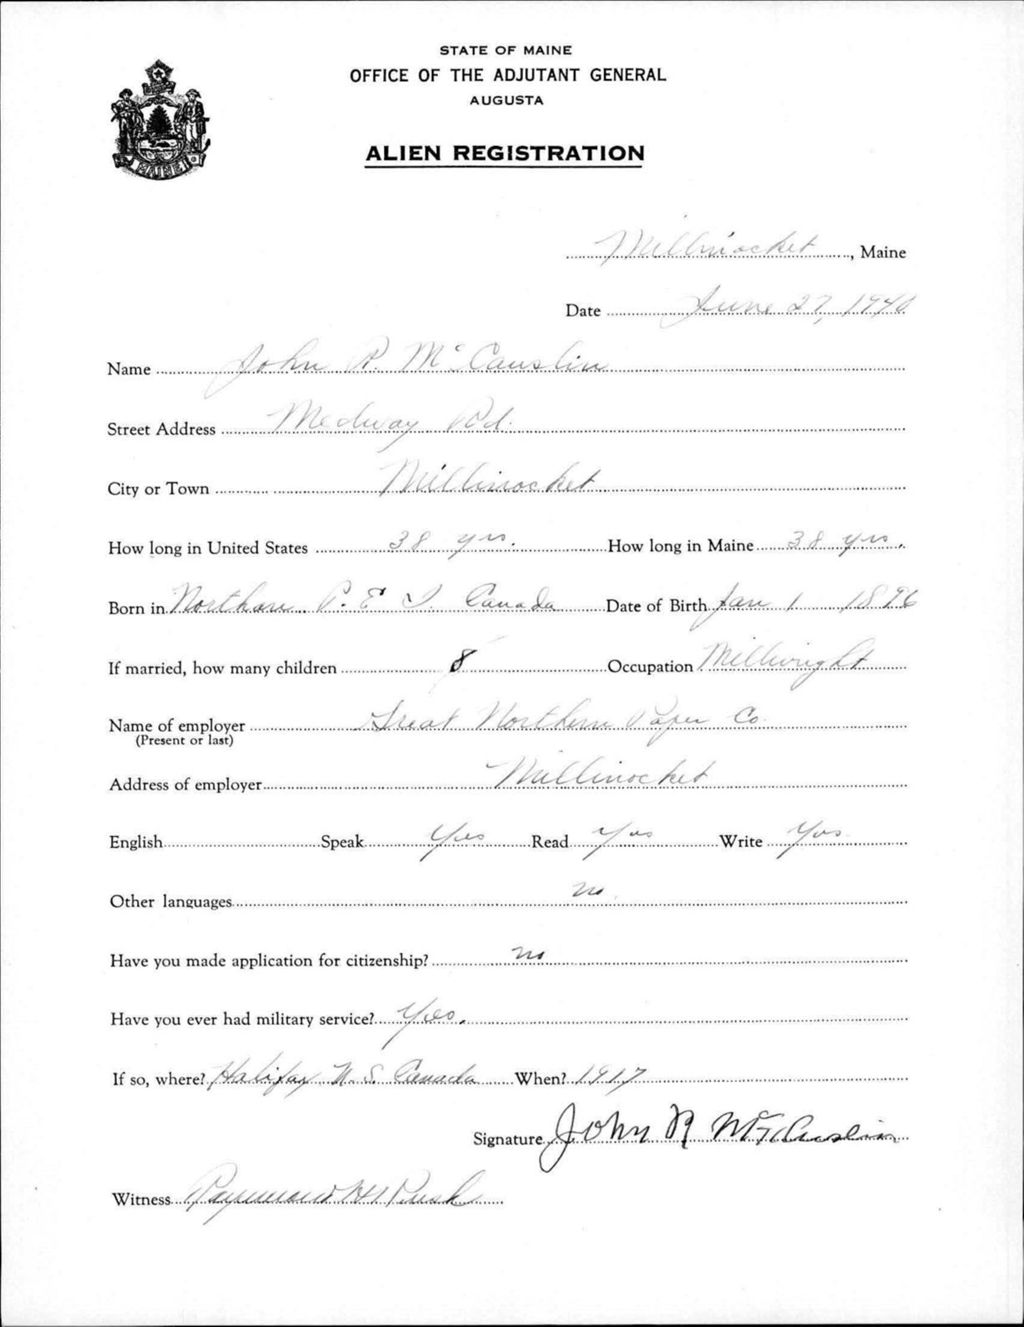 STATE OF MAINE
OFFICE OF THE ADJUTANT GENERAL
AUGUSTA
ALIEN REGISTRATION
MAINE
Millinocket, Maine
Date June 27, 1940
Name John R. McCauslin
Street Address Medway Rd.
City or Town Millinocket
How long in United States 38 yrs. How long in Maine 38 yrs.
Born in P. E. I. Canada Date of Birth Jan 1 1896
If married, how many children 8 Occupation Millwright
Name of employer Great Northern Paper Co.
(Present or last)
Address of employer Millinocket
English Speak Yes Read Yes Write Yes
Other languages no
Have you made application for citizenship? no
Have you ever had military service? Yes.
If so, where? Halifax N. S. Canada When? 1917
Signature John R McCauslin
Witness Raymond Rush